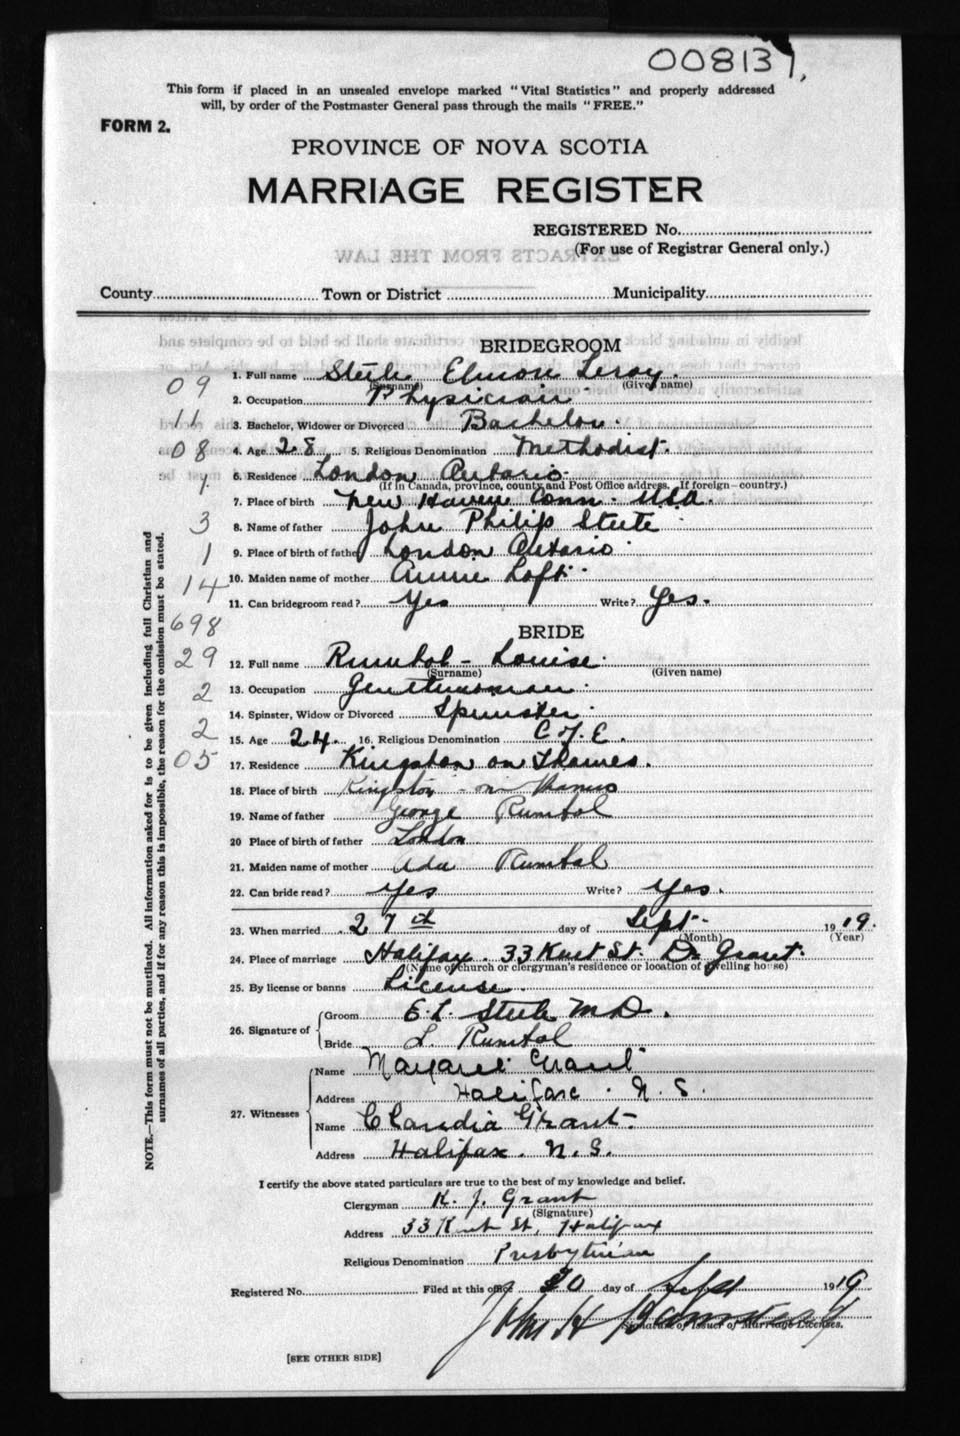 008137,
This form if placed in an unsealed envelope marked "Vital Statistics" and properly addressed
will, by order of the Postmaster General pass through the mails "FREE."
FORM 2.
PROVINCE OF NOVA SCOTIA
MARRIAGE REGISTER
REGISTERED No.
(For use of Registrar General only.)
EXTRACTS FROM THE LAW
County Town or District Municipality
BRIDEGROOM
1. Full name Steele Elmore Leroy.
(Surname) (Given name)
09
2. Occupation Physician
11 3. Bachelor, Widower or Divorced Bachelor.
08 4. Age 28 5. Religious Denomination Methodist.
6. Residence London Ontario
(If in Canada, province, county and Post Office address. If foreign—country.)
1. 7. Place of birth New Haven Conn. USA.
3 8. Name of father John Philip Steele
1 9. Place of birth of father London Ontario
14 10. Maiden name of mother Annie Loft.
11. Can bridegroom read? Yes Write? Yes.
698 BRIDE
29 12. Full name Rumbol - Louise.
(Surname) (Given name)
2 13. Occupation Gentlewoman.
14. Spinster, Widow or Divorced Spinster.
2 15. Age 24. 16. Religious Denomination C of E.
05 17. Residence Kingston on Thames.
18. Place of birth Kingston - on Thames
19. Name of father George Rumbol
20. Place of birth of father London
21. Maiden name of mother Ada Rumbol
22. Can bride read? Yes Write? Yes.
23. When married 27th day of Sept. 1919.
(Month) (Year)
24. Place of marriage Halifax. 33 Kent St. Dr Grant.
(Name of church or clergyman's residence or location of dwelling house)
25. By license or banns License.
26. Signature of Groom E. L. Steele M D.
Bride L. Rumbol
27. Witnesses Name Margaret Grant
Address Halifax. N. S.
Name Claudia Grant.
Address Halifax. N. S.
I certify the above stated particulars are true to the best of my knowledge and belief.
Clergyman K. J. Grant
(Signature)
Address 33 Kent St, Halifax
Religious Denomination Presbyterian
Registered No. Filed at this office 30 day of Sept 1919
John H Barnstead
Signature of Issuer of Marriage Licenses.
[SEE OTHER SIDE]
NOTE.—This form must not be mutilated. All information asked for is to be given including full Christian and
surnames of all parties, and if for any reason this is impossible, the reason for the omission must be stated.